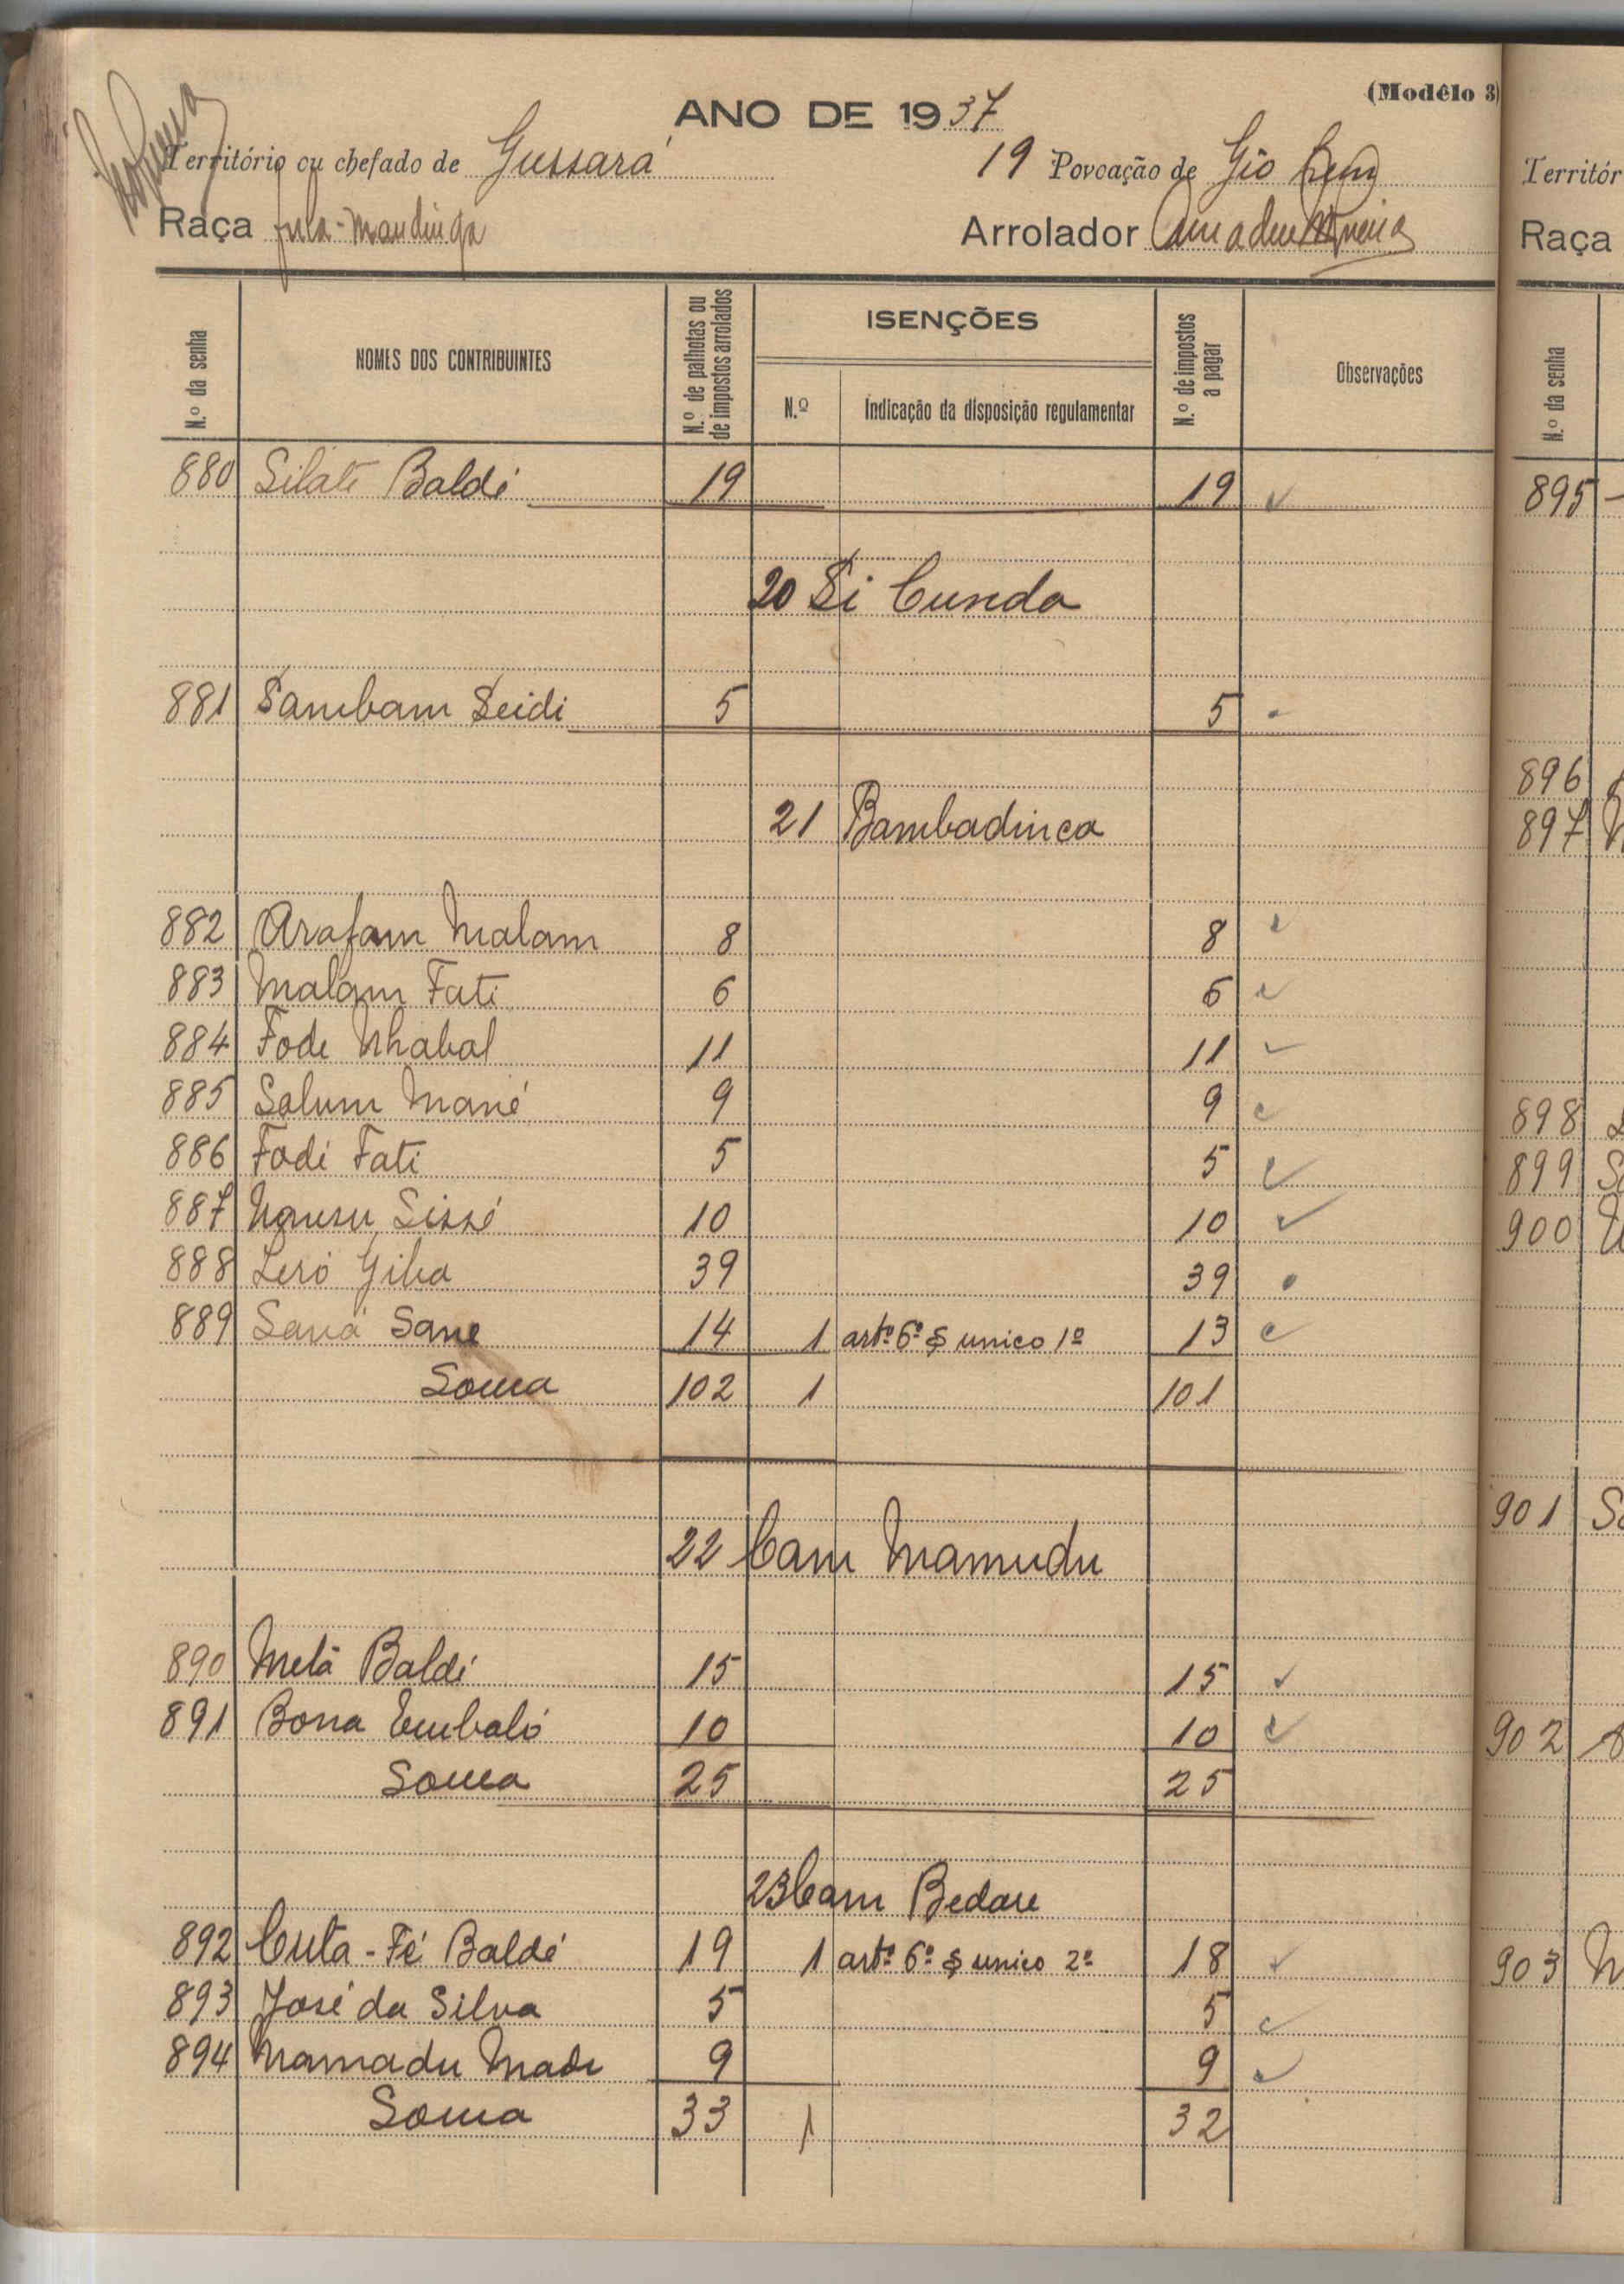 (Modêlo 3)
ANO DE 1937
Território ou chefado de Gussará 19 Povoação de Gio
Raça fula-mandinga Arrolador Amadeu
N.º da senha NOMES DOS CONTRIBUINTES N.º de palhotas ou de impostos arrolados ISENÇÕES N.º Indicação da disposição regulamentar N.º de impostos a pagar Observações
880 Silate Baldé 19 19
20 Si Cunda
881 Sambam Seidi 5 5
21 Bambadinca
882 Arafam Malam 8 8
883 Malam Fati 6 6
884 Fode Nhabal 11 11
885 Salum Mané 9 9
886 Fodé Fati 5 5
887 Sissé 10 10
888 Leró Giba 39 39
889 Saná Sane 14 1 artº 6º § unico 1º 13
Soma 102 1 101
22 Cam Mamudu
890 Metá Baldé 15 15
891 Bona Embaló 10 10
Soma 25 25
23 Cam Bedare
892 Cuta-Fé Baldé 19 1 artº 6º § unico 2º 18
893 José da Silva 5 5
894 Mamadu Made 9 9
Soma 33 1 32
Territór
Raça
N.º da senha
895
896
897
898
899
900
901
902
903